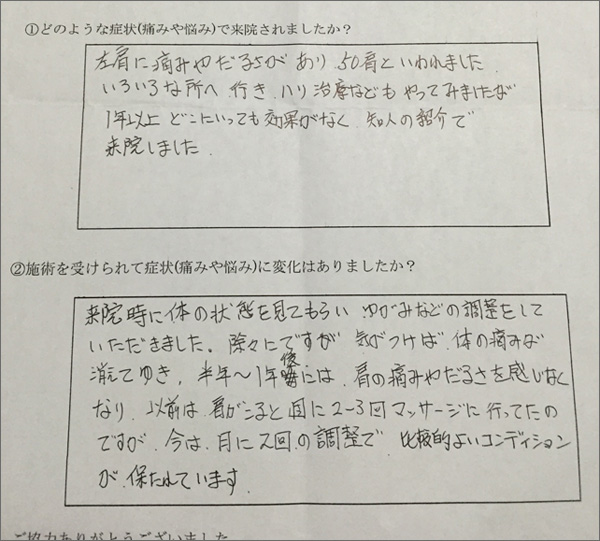 ①どのような症状(痛みや悩み)で来院されましたか？
左肩に痛みやだるさがあり 50肩といわれました
いろいろな所へ 行き ハリ治療なども やってみましたが
1年以上 どこにいっても効果がなく 知人の紹介で
来院しました.
②施術を受けられて症状(痛みや悩み)に変化はありましたか？
来院時に体の状態を見てもらい ゆがみなどの調整をして
いただきました. 除々にですが 気がつけば 体の痛みが
消えてゆき, 半年〜1年後には 肩の痛みやだるさを感じなく
なり. 以前は 肩がこると 月に2〜3回マッサージに行ってたの
ですが 今は 月に2回の調整で 比較的よいコンディション
が 保たれています
ご協力ありがとうございました